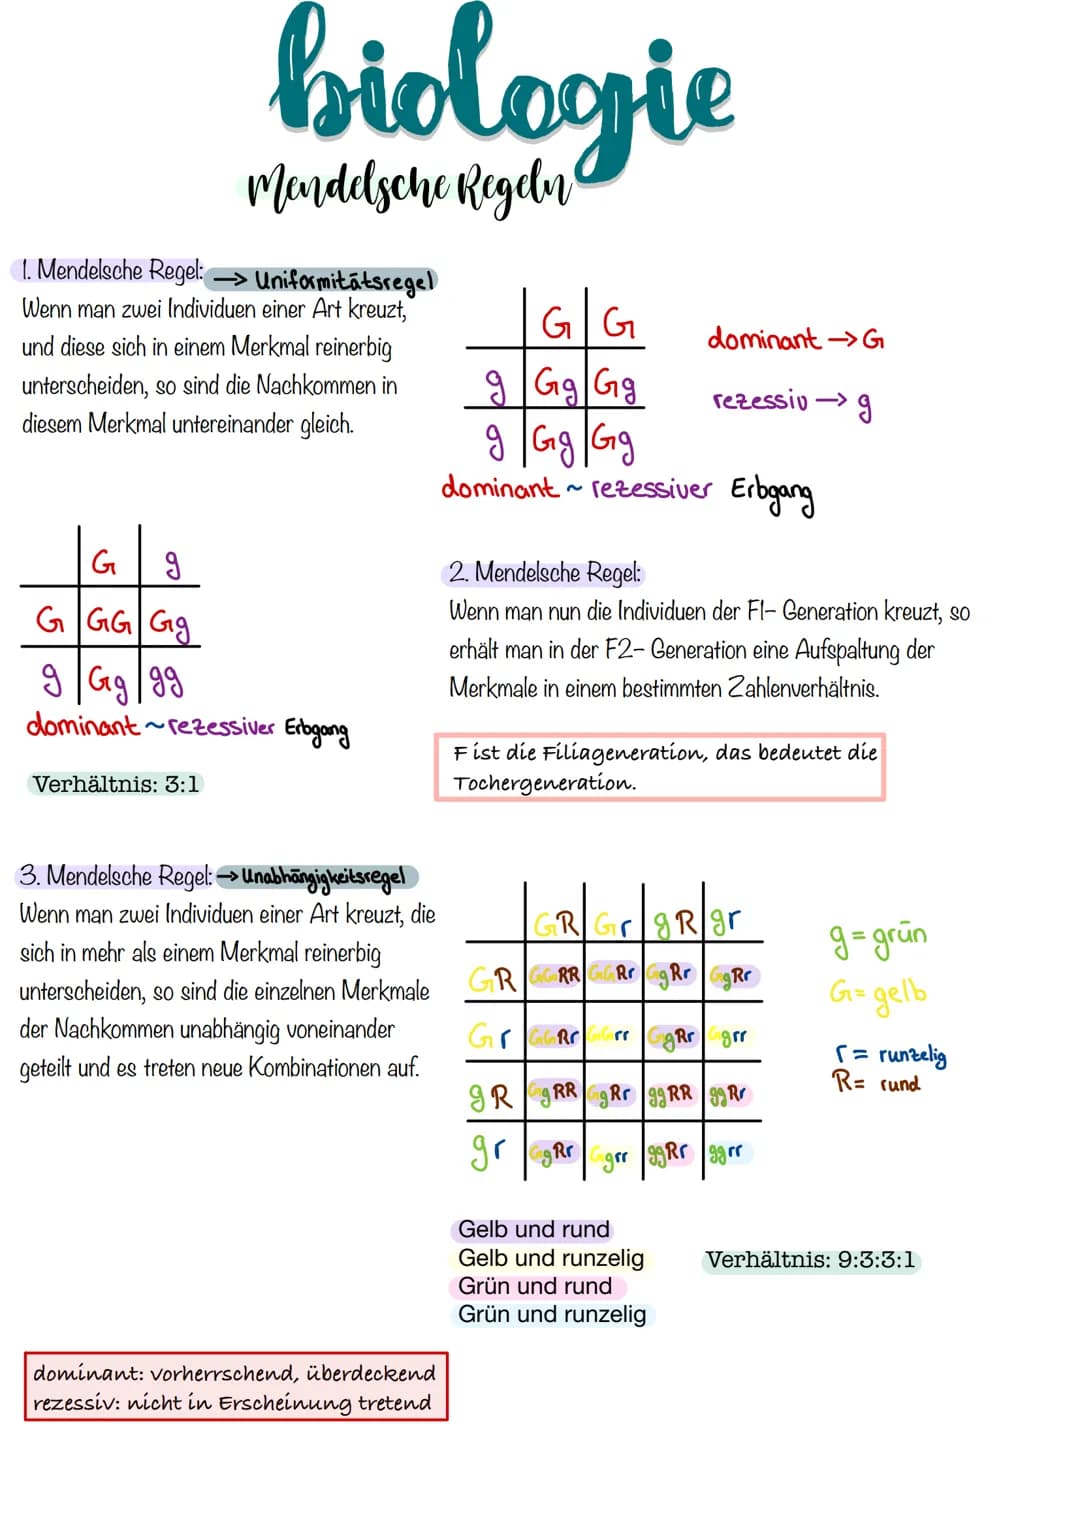 biologie
Mendelsche Regeln
1. Mendelsche Regel: → Uniformitätsregel
Wenn man zwei Individuen einer Art kreuzt,
und diese sich in einem Merkmal reinerbig
unterscheiden, so sind die Nachkommen in
diesem Merkmal untereinander gleich.
G G
g Gg Gg
g Gg Gg
dominant → G
rezessiv → g
dominant ~ rezessiver Erbgang
G g
G GG Gg
g Gg gg
dominant ~ rezessiver Erbgang
Verhältnis: 3:1
2. Mendelsche Regel:
Wenn man nun die Individuen der F1- Generation kreuzt, so
erhält man in der F2- Generation eine Aufspaltung der
Merkmale in einem bestimmten Zahlenverhältnis.
F ist die Filiageneration, das bedeutet die
Tochergeneration.
3. Mendelsche Regel: → Unabhängigkeitsregel
Wenn man zwei Individuen einer Art kreuzt, die
sich in mehr als einem Merkmal reinerbig
unterscheiden, so sind die einzelnen Merkmale
der Nachkommen unabhängig voneinander
geteilt und es treten neue Kombinationen auf.
GR Gr gR gr
GR GGRR GGRr GgRr GgRr
Gr GGRr GGrr GgRr Ggrr
gR GgRR GgRr ggRR ggRr
gr GgRr Ggrr ggRr ggrr
g = grün
G = gelb
r = runzelig
R = rund
Gelb und rund
Gelb und runzelig
Grün und rund
Grün und runzelig
Verhältnis: 9:3:3:1
dominant: vorherrschend, überdeckend
rezessiv: nicht in Erscheinung tretend